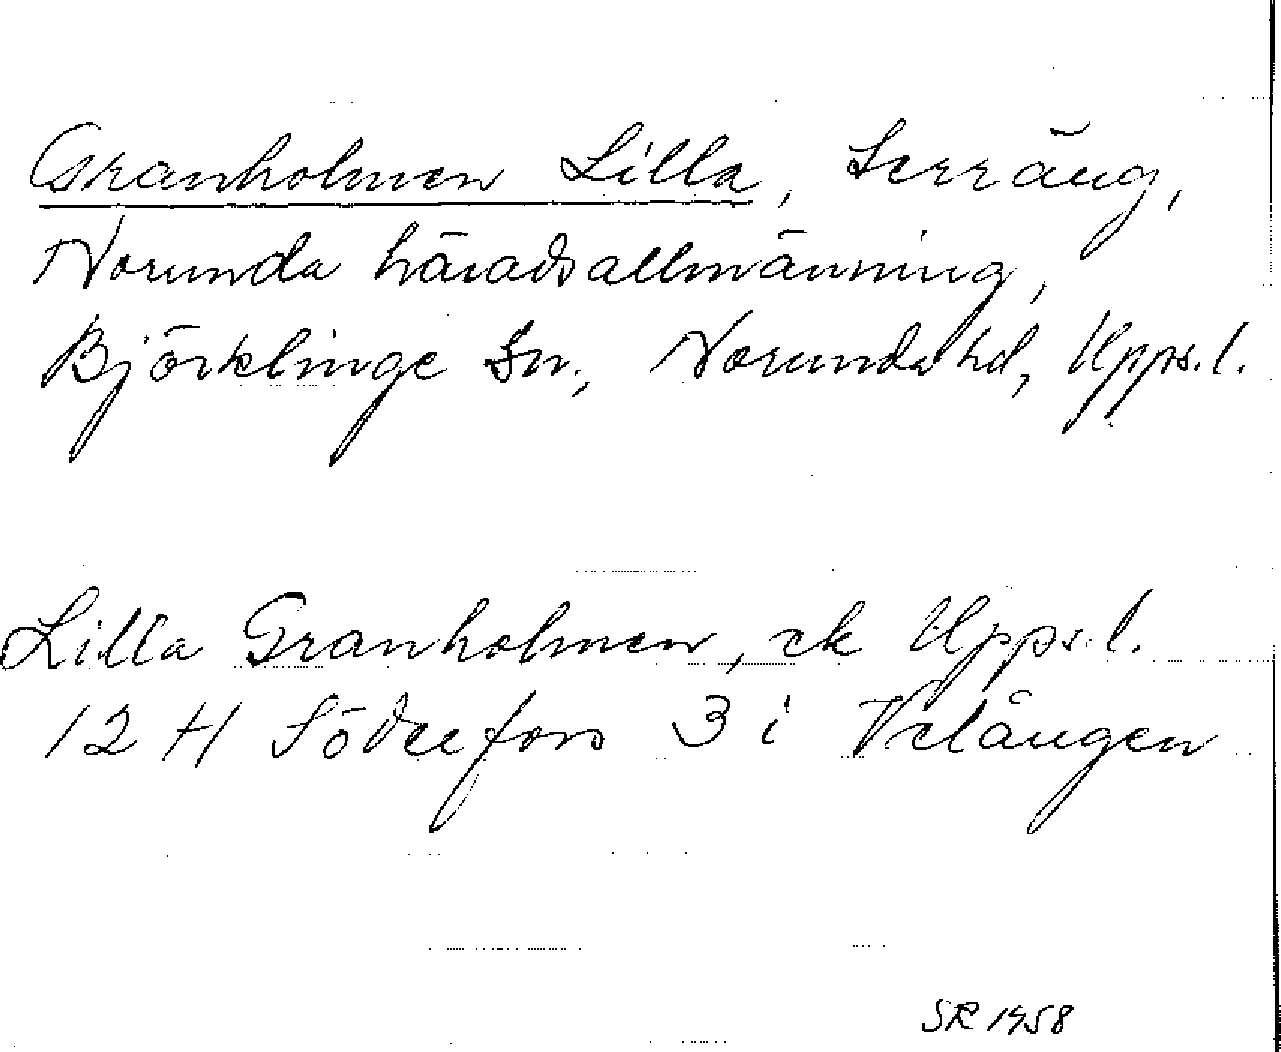 Granholmen Lilla, terräng,
Norunda häradsallmänning,
Björklinge sn, Norunda hd, Upps. l.
Lilla Granholmen, ek Upps. l.
12 H Söderfors 3 i Velången
SR 1958